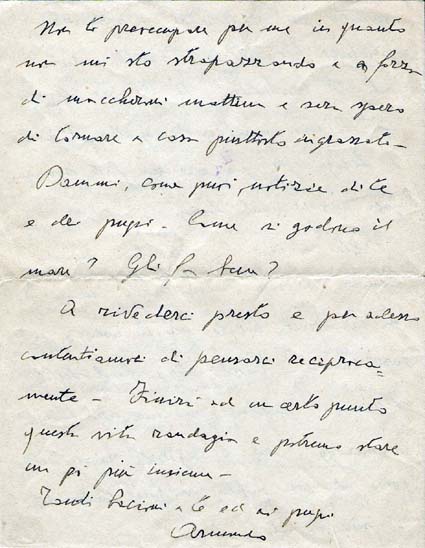 Non ti preoccupare per me in quanto
non mi sto strapazzando e a forza
di maccheroni mattina e sera spero
di tornare a casa piuttosto ingrassato –
Dammi, come puoi, notizie di te
e dei pupi. Come si godono il
mare? Gli fa bene?
A rivederci presto e per adesso
contentiamoci di pensarci reciproca=
mente – Finirà ad un certo punto
questa vita randagia e potremo stare
un pò più insieme –
Tanti bacioni a te ed ai pupi
Armando